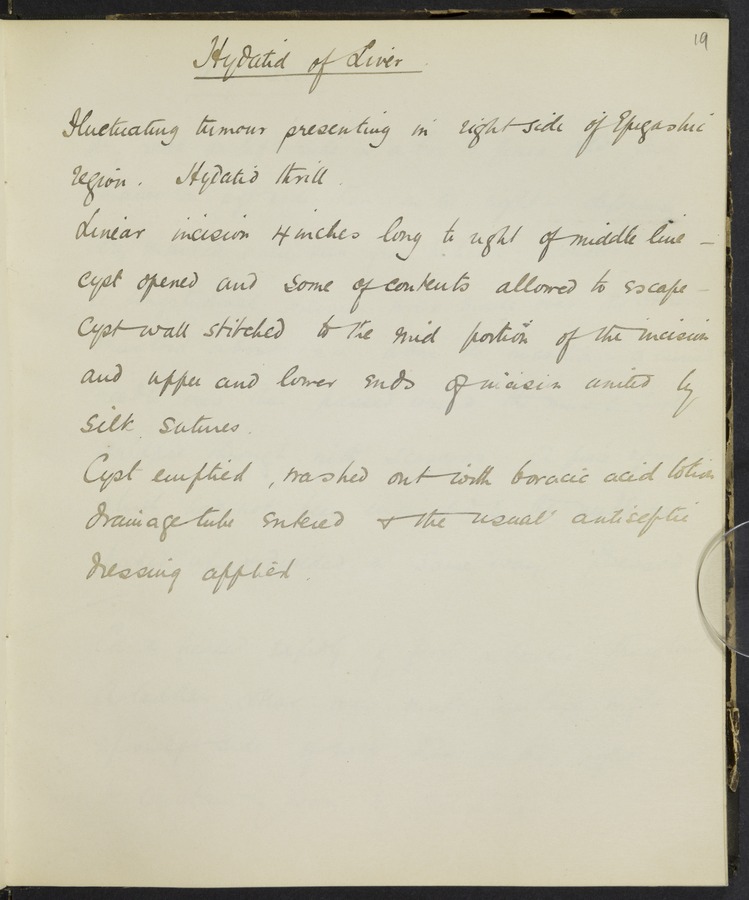 19
Hydatid of Liver.
Fluctuating tumour presenting in right side of Epigastric
region. Hydatid thrill.
Linear incision 4 inches long to right of middle line –
cyst opened and some of contents allowed to escape –
Cyst wall stitched to the mid portion of the incision
and upper and lower ends of incision united by
silk sutures.
Cyst emptied, washed out with boracic acid lotion
drainage tube entered & the usual antiseptic
dressing applied.